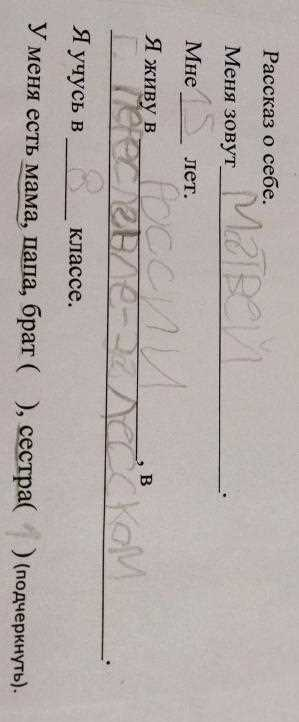 Рассказ о себе.
Меня зовут Матвей.
Мне 15 лет.
Я живу в России, в
г. Пееславле-залесском.
Я учусь в 8 классе.
У меня есть мама, папа, брат ( ), сестра( 1 ) (подчеркнуть).